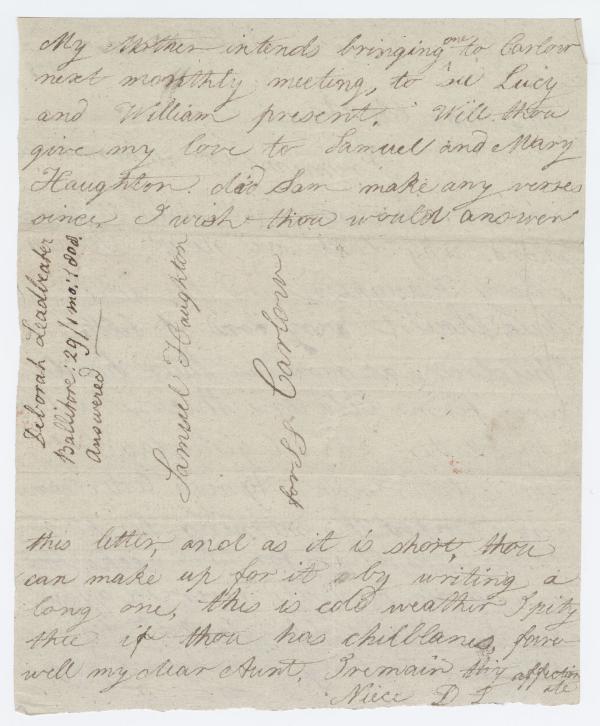 My Mother intends bringing one to Carlow
next monthly meeting, to see Lucy
and William present. Will thou
give my love to Samuel and Mary
Haughton. did Sam make any verses
since, I wish thou would answer
Deborah Leadbeater
Ballitore: 29/1mo: 1808
Answered
Samuel Haughton
for SL Carlow
this letter, and as it is short, thou
can make up for it by writing a
long one, this is cold weather I pity
thee if thou has chilblanes, fare
well my dear Aunt. I remain thy affection
ate
Niece D L